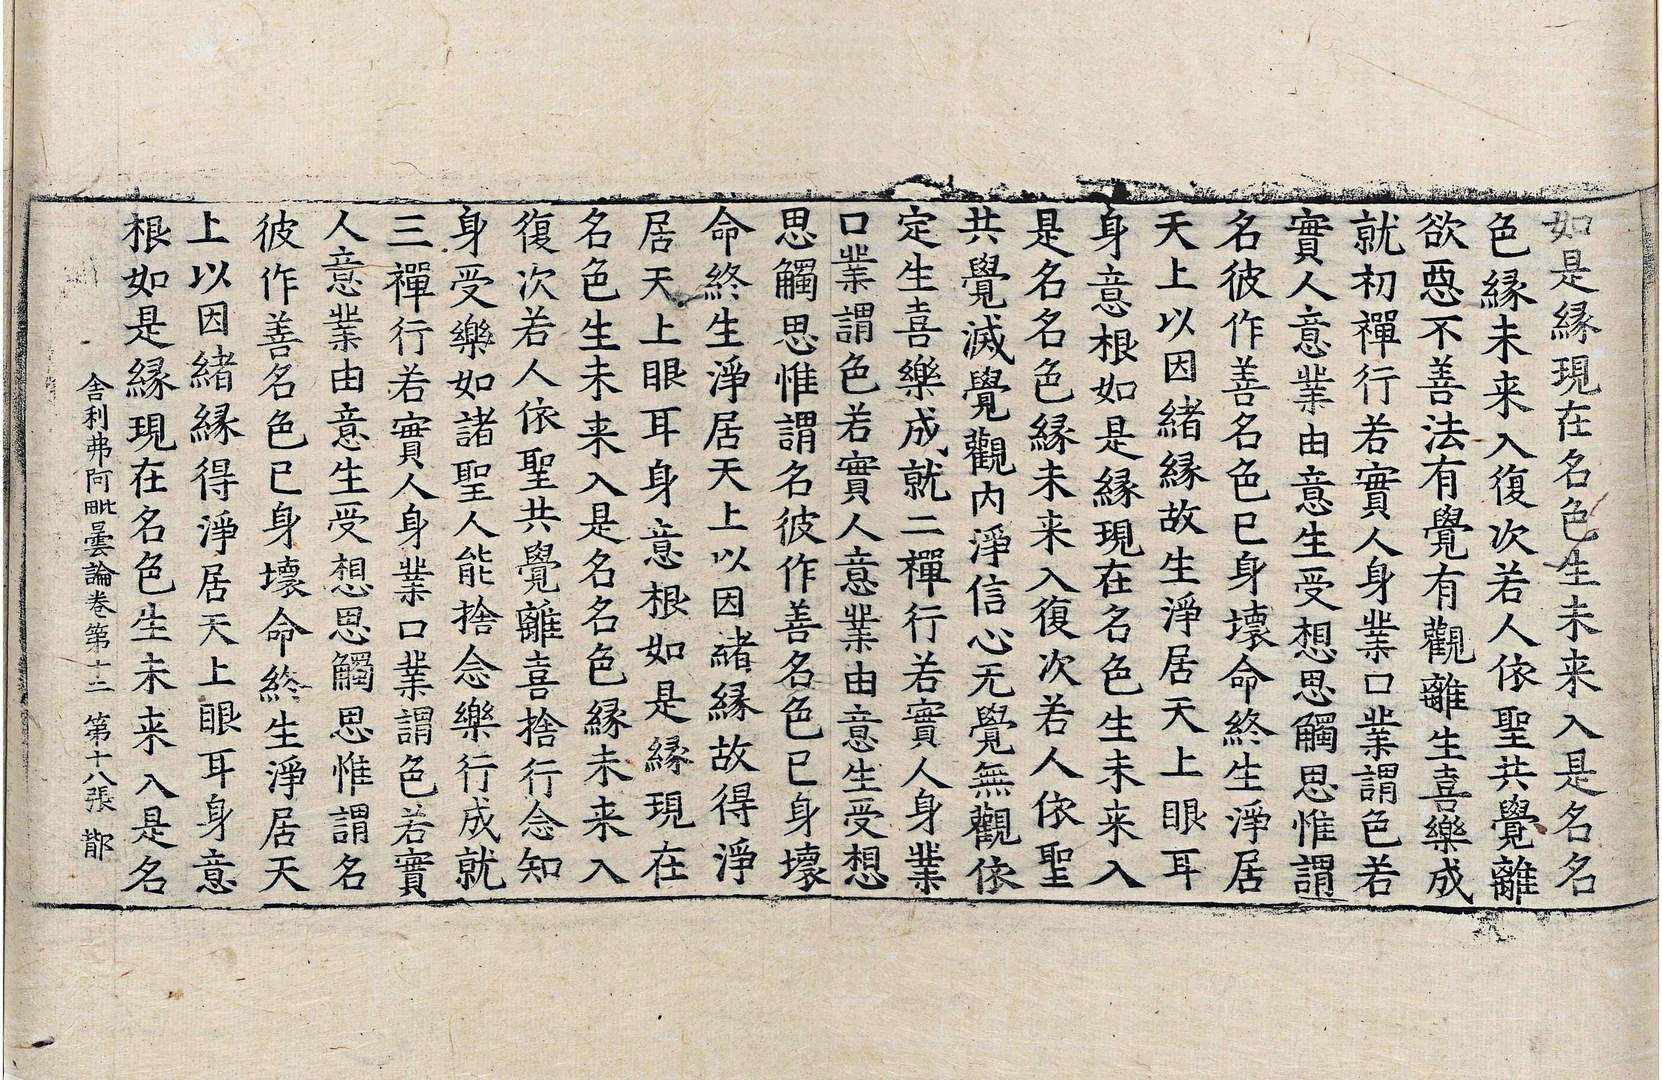 如是縁現在名色生未来入是名名
色縁未来入復次若人依聖共覺離
欲惡不善法有覺有觀離生喜樂成
就初禪行若實人身業口業謂色若
實人意業由意生受想思觸思惟謂
名彼作善名色已身壞命終生淨居
天上以因緒縁故生淨居天上眼耳
身意根如是縁現在名色生未来入
是名名色縁未来入復次若人依聖
共覺滅覺觀内淨信心无覺無觀依
定生喜樂成就二禪行若實人身業
口業謂色若實人意業由意生受想
思觸思惟謂名彼作善名色已身壞
命終生淨居天上以因緒縁故得淨
居天上眼耳身意根如是縁現在
名色生未来入是名名色縁未来入
復次若人依聖共覺離喜捨行念知
身受樂如諸聖人能捨念樂行成就
三禪行若實人身業口業謂色若實
人意業由意生受想思觸思惟謂名
彼作善名色已身壞命終生淨居天
上以因緒縁得淨居天上眼耳身意
根如是縁現在名色生未来入是名
舍利弗阿毗曇論卷第十二 第十八張